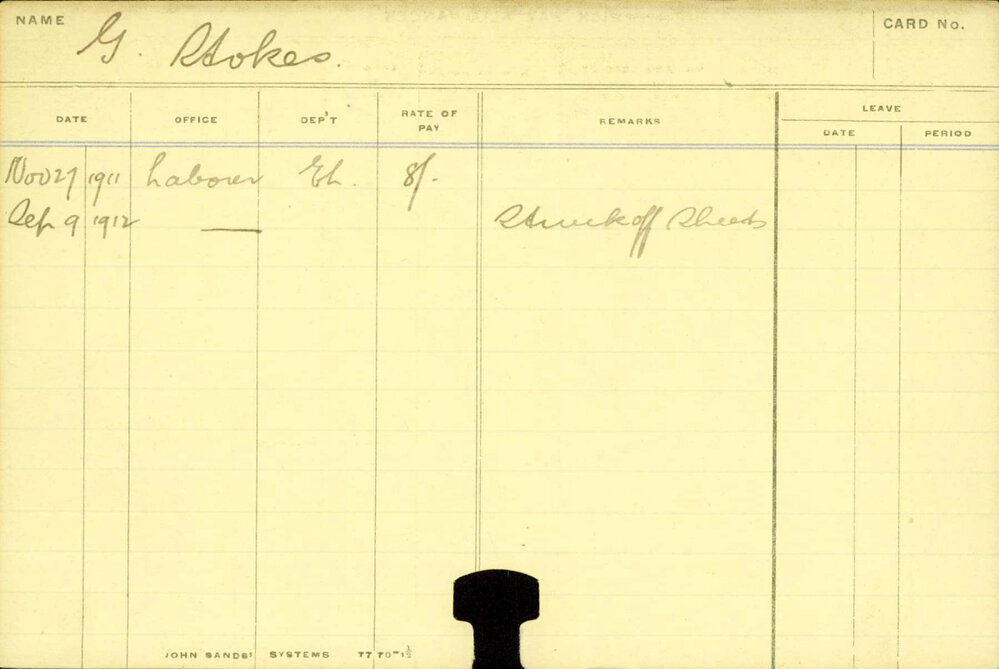 NAME G. Stokes. CARD No.
LEAVE
DATE OFFICE DEP'T RATE OF PAY REMARKS DATE PERIOD
Nov 27 1911 Laborer Eh. 8/-
Sep 9 1912 — Struck off Sheets
JOHN SANDS' SYSTEMS